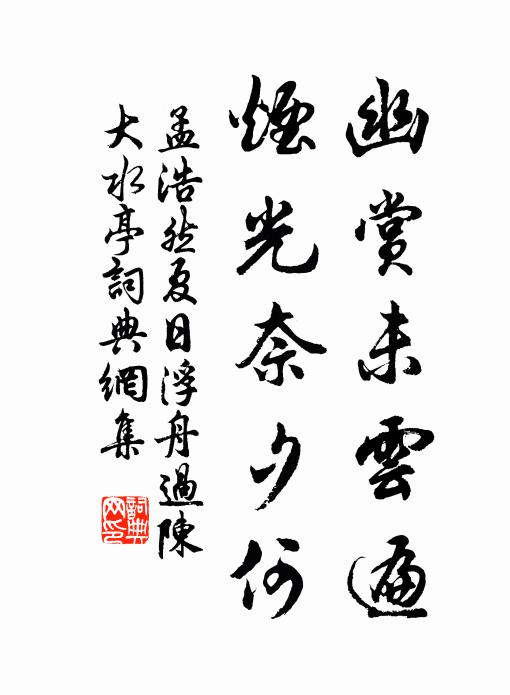 幽賞未雲遍
煙光奈夕何
孟浩然夏日浮舟過陳
大水亭詞典網集
詞典
网印